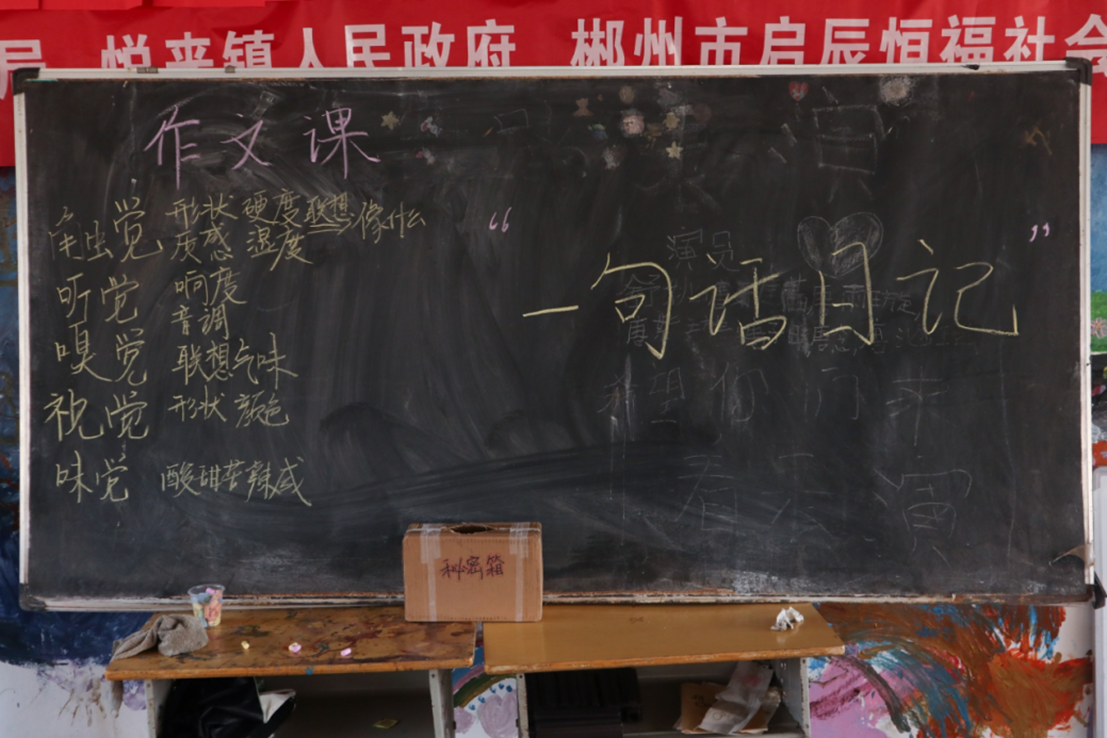 悦来镇人民政府 郴州市启辰恒福社会
作文课
触觉 形状 硬度 联想 像什么
质感 湿度
听觉 响度
音调
嗅觉 联想气味
视觉 形状 颜色
味觉 酸甜苦辣咸
“一句话日记”
演员
希望你们来
看 演
秘密箱